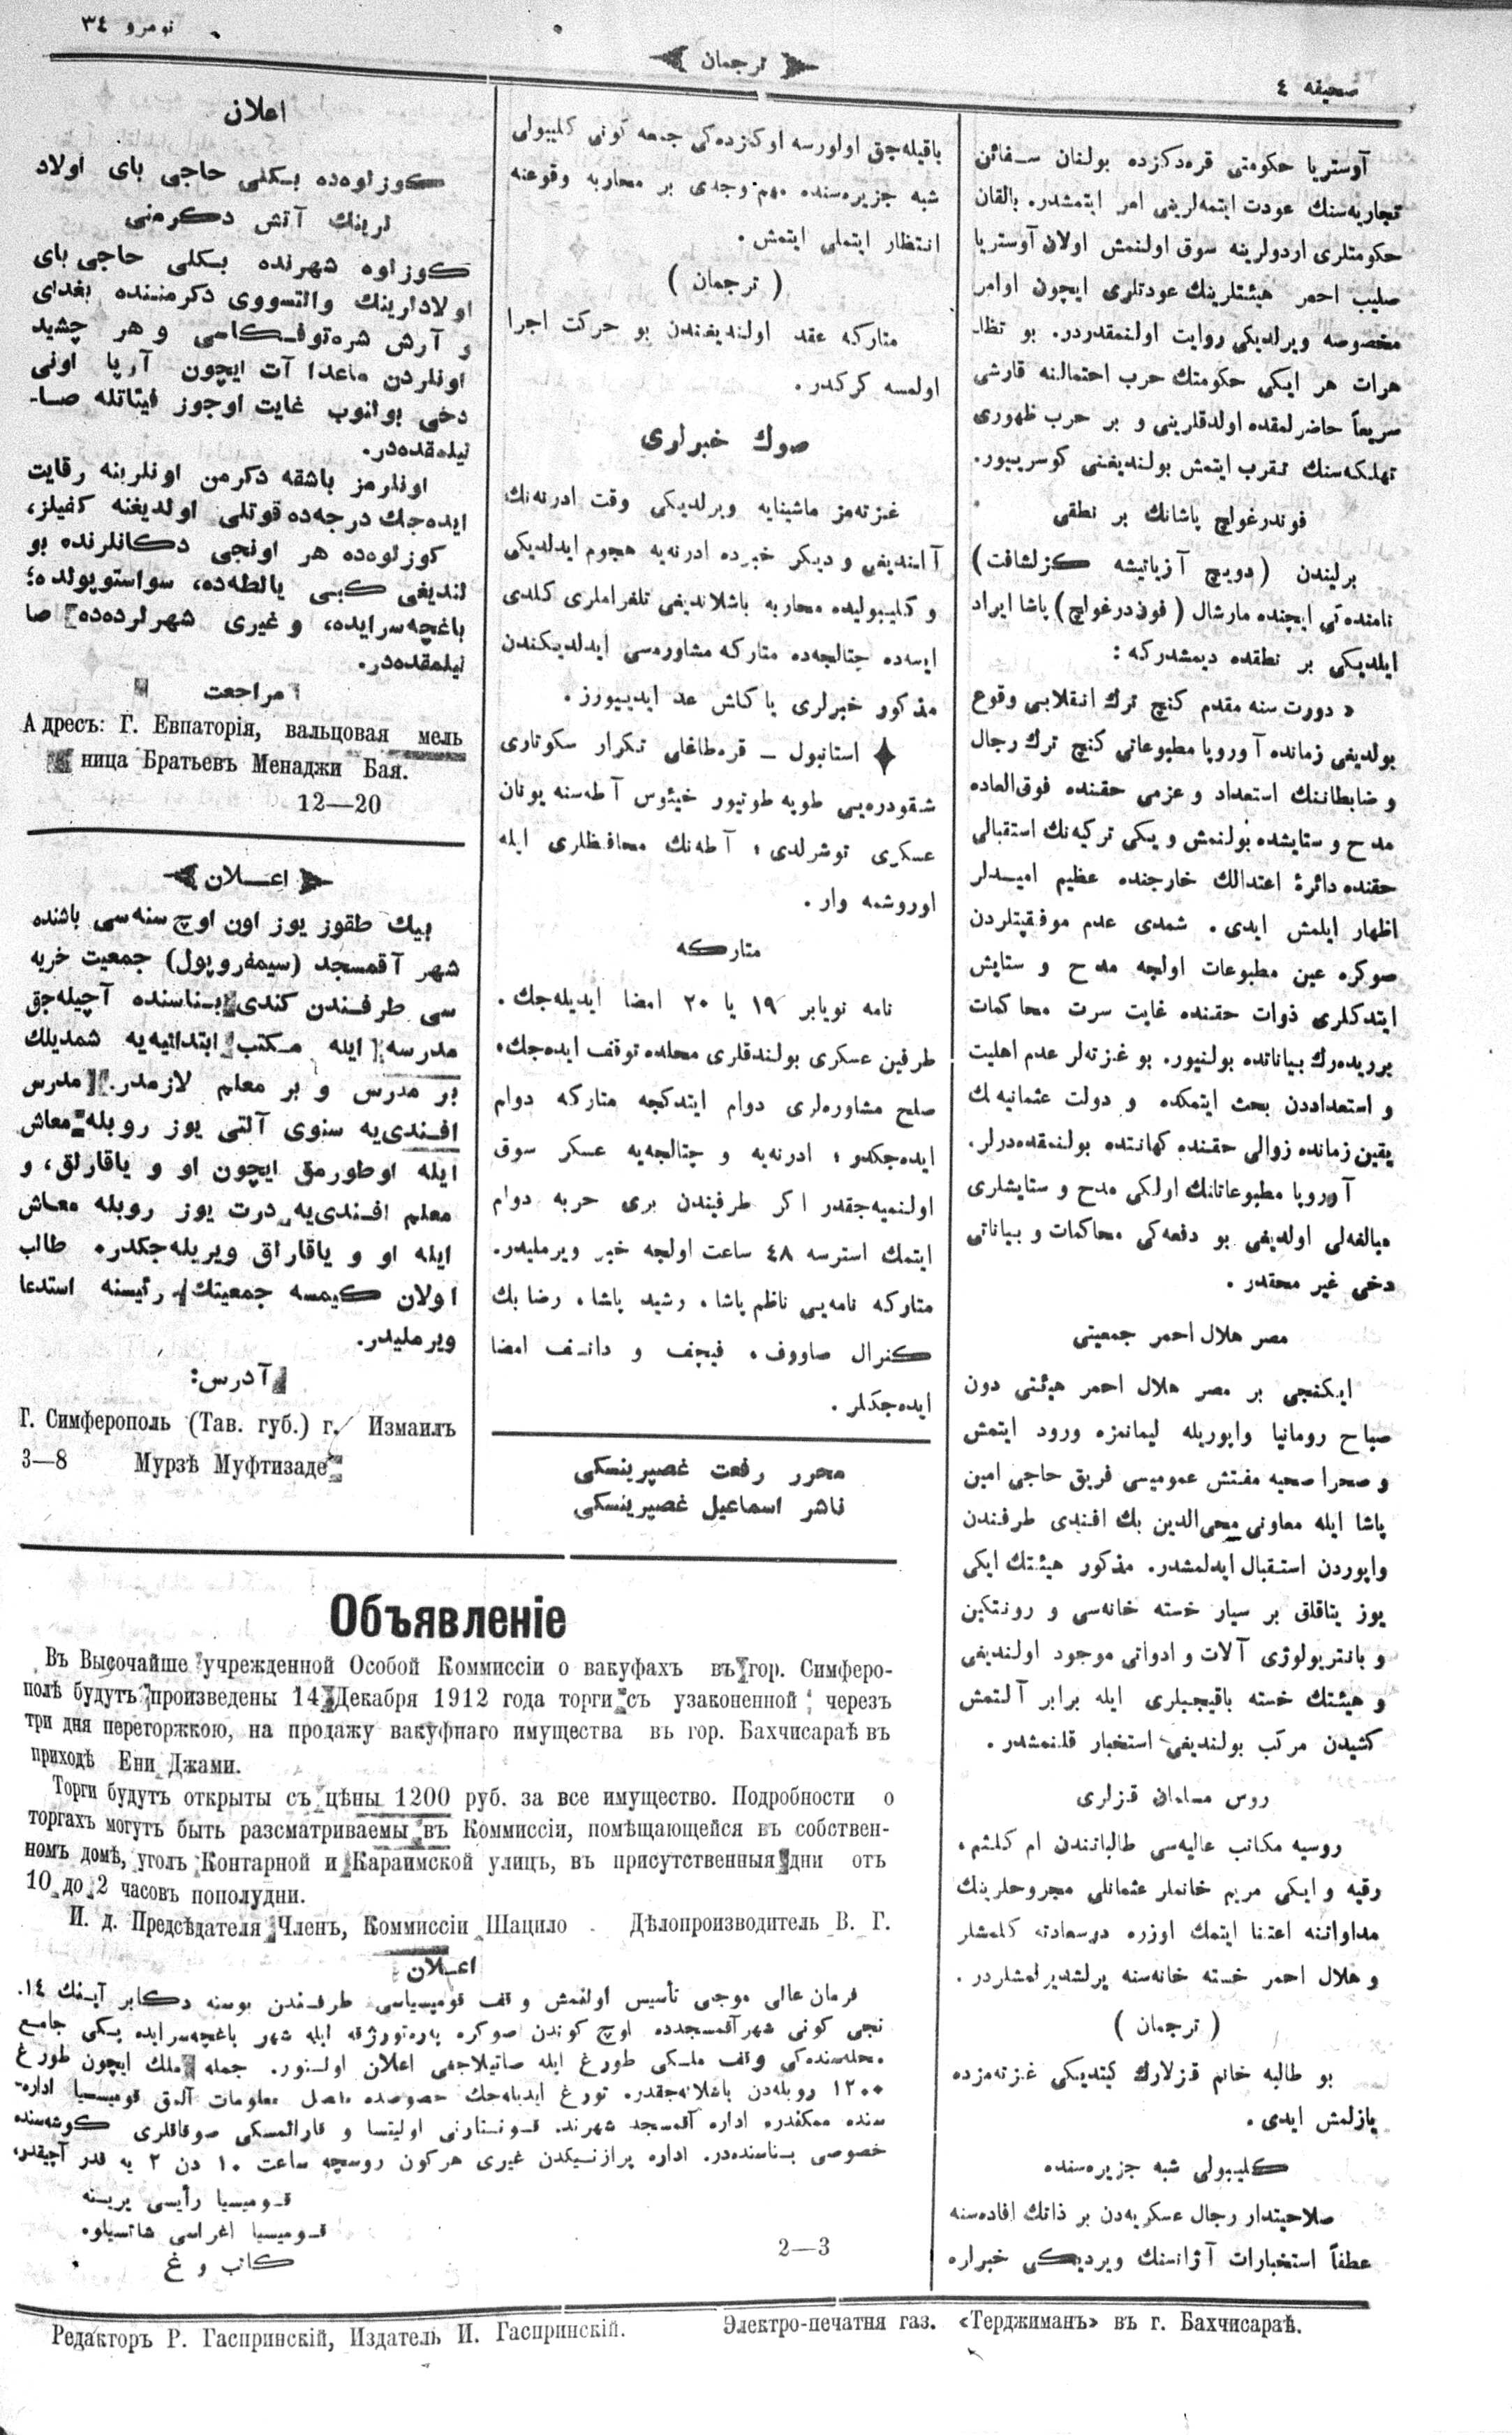 نومرو ٣٤
ترجمان
صحيفه ٤
آوستريا حكومتى قره‌دكزده بولنان سفائن
تجاريه‌سنك عودت ايتمه‌لرينى امر ايتمشدر. بالقان
حكومتلرى اردولرينه سوق اولنمش اولان آوستريا
صليب احمر هيئتلرينك عودتلرى ايچون اوامر
مخصوصه ويرلديكى روايت اولنمقده‌در. بو تظا-
هرات هر ايكى حكومتك حرب احتمالنه قارشى
سريعاً حاضرلمقده اولدقلرينى و بر حرب ظهورى
تهلكه‌سنك تقرب ايتمش بولنديغنى كوسرييور.
فوندرغولچ پاشانك بر نطقى
برليندن (دويچ آزياتيشه كزلشافت)
نامنده‌كى ايچنده مارشال (فون‌درغولچ) پاشا ايراد
ايلديكى بر نطقده ديمشدركه:
« دورت سنه مقدم كنچ ترك انقلابى وقوع
بولديغى زمانده آوروپا مطبوعاتى كنچ ترك رجال
و ضابطاننك استعداد و عزمى حقنده فوق‌العاده
مدح و ستايشده بولنمش و يكى تركيه‌نك استقبالى
حقنده دائرۀ اعتدالك خارجنده عظيم اميدلر
اظهار ايلمش ايدى. شمدى عدم موفقيتلردن
صوكره عين مطبوعات اولجه مدح و ستايش
ايتدكلرى ذوات حقنده غايت سرت محاكمات
يرويده‌رك بياناتده بولنيور. بو غزته‌لر عدم اهليت
و استعداددن بحث ايتمكده و دولت عثمانيه‌نك
يقين زمانده زوالى حقنده كهانتده بولنمقده‌درلر.
آوروپا مطبوعاتانك اولكى مدح و ستايشلرى
مبالغه‌لى اولديغى بو دفعه‌كى محاكمات و بياناتى
دخى غير محقدر.
مصر هلال احمر جمعيتى
ايكنجى بر مصر هلال احمر هيئتى دون
صباح رومانيا واپوريله ليمانمزه ورود ايتمش
و صحرا صحيه مفتش عموميسى فريق حاجى امين
پاشا ايله معاونى محى‌الدين بك افندى طرفندن
واپوردن استقبال ايدلمشدر. مذكور هيئتك ايكى
يوز يتاقلق بر سيار خسته خانه‌سى و رونتكين
و بانتريولوژى آلات و ادواتى موجود اولنديغى
و هيئتك خسته باقيجيلرى ايله برابر آلتمش
كشيدن مركب بولنديغى استخبار قلنمشدر.
روس مسلمان قزلرى
روسيه مكاتب عاليه‌سى طالباتندن ام كلثم،
رقيه و ايكى مريم خانملر عثمانلى مجروحلرينك
مداواتنه اعتنا ايتمك اوزره درسعادته كلمشلر
و هلال احمر خسته خانه‌سنه يرلشديرلمشلردر.
( ترجمان )
بو طالبه خانم قزلارك كيتديكى غزته‌مزده
يازلمش ايدى.
كليبولى شبه جزيره‌سنده
صلاحيتدار رجال عسكريه‌دن بر ذاتك افاده‌سنه
عطفاً استخبارات آژانسنك ويرديكى خبراره
باقيله‌جق اولورسه اوكزده‌كى جمعه كونى كليبولى
شبه جزيره‌سنده مهم وجدى بر محاربه وقوعنه
انتظار ايتملى ايتمش.
( ترجمان )
متاركه عقد اولنديغندن بو حركت اجرا
اولمسه كركدر.
صوك خبرلرى
غزته‌مز ماشينايه ويرلديكى وقت ادرنه‌نك
آلنديغى و ديكر خبرده ادرنه‌يه هجوم ايدلديكى
و كليبوليده محاربه باشلانديغى تلغراملرى كلدى
ايسه‌ده چتالجه‌ده متاركه مشاوره‌سى ايدلديكندن
مذكور خبرلرى ياكلش عد ايدييورز.
استانبول – قره‌طاغلى تكرار سكوتارى
شقودره‌يى طوپه طوتيور خيئوس آطه‌سنه يونان
عسكرى توشرلدى؛ آطه‌نك محافظلرى ايله
اوروشمه وار.
متاركه
نامه نويابر ١٩ يا ٢٠ امضا ايديله‌جك.
طرفين عسكرى بولندقلرى محلده توقف ايده‌جك.
صلح مشاوره‌لرى دوام ايتدكجه متاركه دوام
ايده‌جكدو؛ ادرنه‌يه و چتالجه‌يه عسكر سوق
اولنميه‌جقدر اكر طرفيندن برى حربه دوام
ايتمك استرسه ٤٨ ساعت اولجه خبر ويرمليدر.
متاركه نامه‌يى ناظم پاشا، رشيد پاشا، رضا بك
كنرال صاووف، فيچف و دانف امضا
ايده‌جكلر.
محرر رفعت غصپرينسكى
ناشر اسماعيل غصپرينسكى
اعلان
كوزلوه‌ده بكلى حاجى باى اولاد
لرينك آتش دكرمنى
كوزلوه شهرنده بكلى حاجى باى
اولادلرينك والتسووى دكرمننده بغداى
و آرش شره‌توفكاسى و هر چشيد
اونلردن ماعدا آت ايچون آرپا اونى
دخى بولنوب غايت اوجوز فيئاتله صا-
تيلمقده‌در.
اونلرمز باشقه دكرمن اونلرينه رقابت
ايده‌جك درجه‌ده قوتلى اولديغنه كفيلز،
كوزلوه‌ده هر اونجى دكانلرنده بو
لنديغى كبى يالطه‌ده، سواستوپولده؛
باغچه‌سرايده، و غيرى شهرلرده‌ده صا
تيلمقده‌در.
مراجعت
Адресъ: Г. Евпаторія, вальцовая мель
ница Братьевъ Менаджи Бая.
12—20
اعلان
بيك طقوز يوز اون اوچ سنه‌سى باشنده
شهر آقمسجد (سيمفروپول) جمعيت خريه
سى طرفندن كندى بناسنده آچيله‌جق
مدرسه ايله مكتب ابتدائيه‌يه شمديلك
بر مدرس و بر معلم لازمدر. مدرس
افندى‌يه سنوى آلتى يوز روبله معاش
ايله اوطورمق ايچون او و ياقارلق، و
معلم افندى‌يه درت يوز روبله معاش
ايله او و ياقاراق ويريله‌جكدر. طالب
اولان كيمسه جمعيتك رئيسنه استدعا
ويرمليدر.
آدرس:
Г. Симферополь (Тав. губ.) г. Измаилъ
3—8 Мурзѣ Муфтизаде
Объявленіе
Въ Высочайше учрежденной Особой Коммиссіи о вакуфахъ въ гор. Симферо-
полѣ будутъ произведены 14 Декабря 1912 года торги съ узаконенной черезъ
три дня переторжкою, на продажу вакуфнаго имущества въ гор. Бахчисараѣ въ
приходѣ Ени Джами.
Торги будутъ открыты съ цѣны 1200 руб. за все имущество. Подробности о
торгахъ могутъ быть разсматриваемы въ Коммиссіи, помѣщающейся въ собствен-
номъ домѣ, уголъ Контарной и Караимской улицъ, въ присутственныя дни отъ
10 до 2 часовъ пополудни.
И. д. Предсѣдателя Членъ, Коммиссіи Шацило Дѣлопроизводитель В. Г.
اعلان
فرمان عالى موجبى تأسيس اولنمش وقف قوميسياسى طرفندن بوسنه دكابر آينك ١٤.
نجى كونى شهر آقمسجدده اوچ كوندن صوكره پره‌تورژقه ايله شهر باغچه‌سرايده يكى جامع
محله‌سنده‌كى وقف ملكى طورغ ايله صاتيلاجغى اعلان اولنور. جمله ملك ايچون طورغ
١٢٠٠ روبله‌دن باشلانه‌جقدر. تورغ ايديله‌جك خصوصده مفصل معلومات آلمق قوميسسيا اداره-
سنده ممكندره اداره آقمسجد شهرند. قونتارنى اوليتسا و قارائمسكى صوقاقلرى كوشه‌سنده
خصوصى بناسنده‌در. اداره پرازنيكدن غيرى هركون روسچه ساعت ١٠ دن ٢ يه قدر آچيقدر.
قوميسيا رأيسى يرينه
قوميسيا اغراسى شاتسيلوه
كاتب و غ
2—3
Редакторъ Р. Гаспринскій, Издатель И. Гаспринскій. Электро-печатня газ. «Терджиманъ» въ г. Бахчисараѣ.